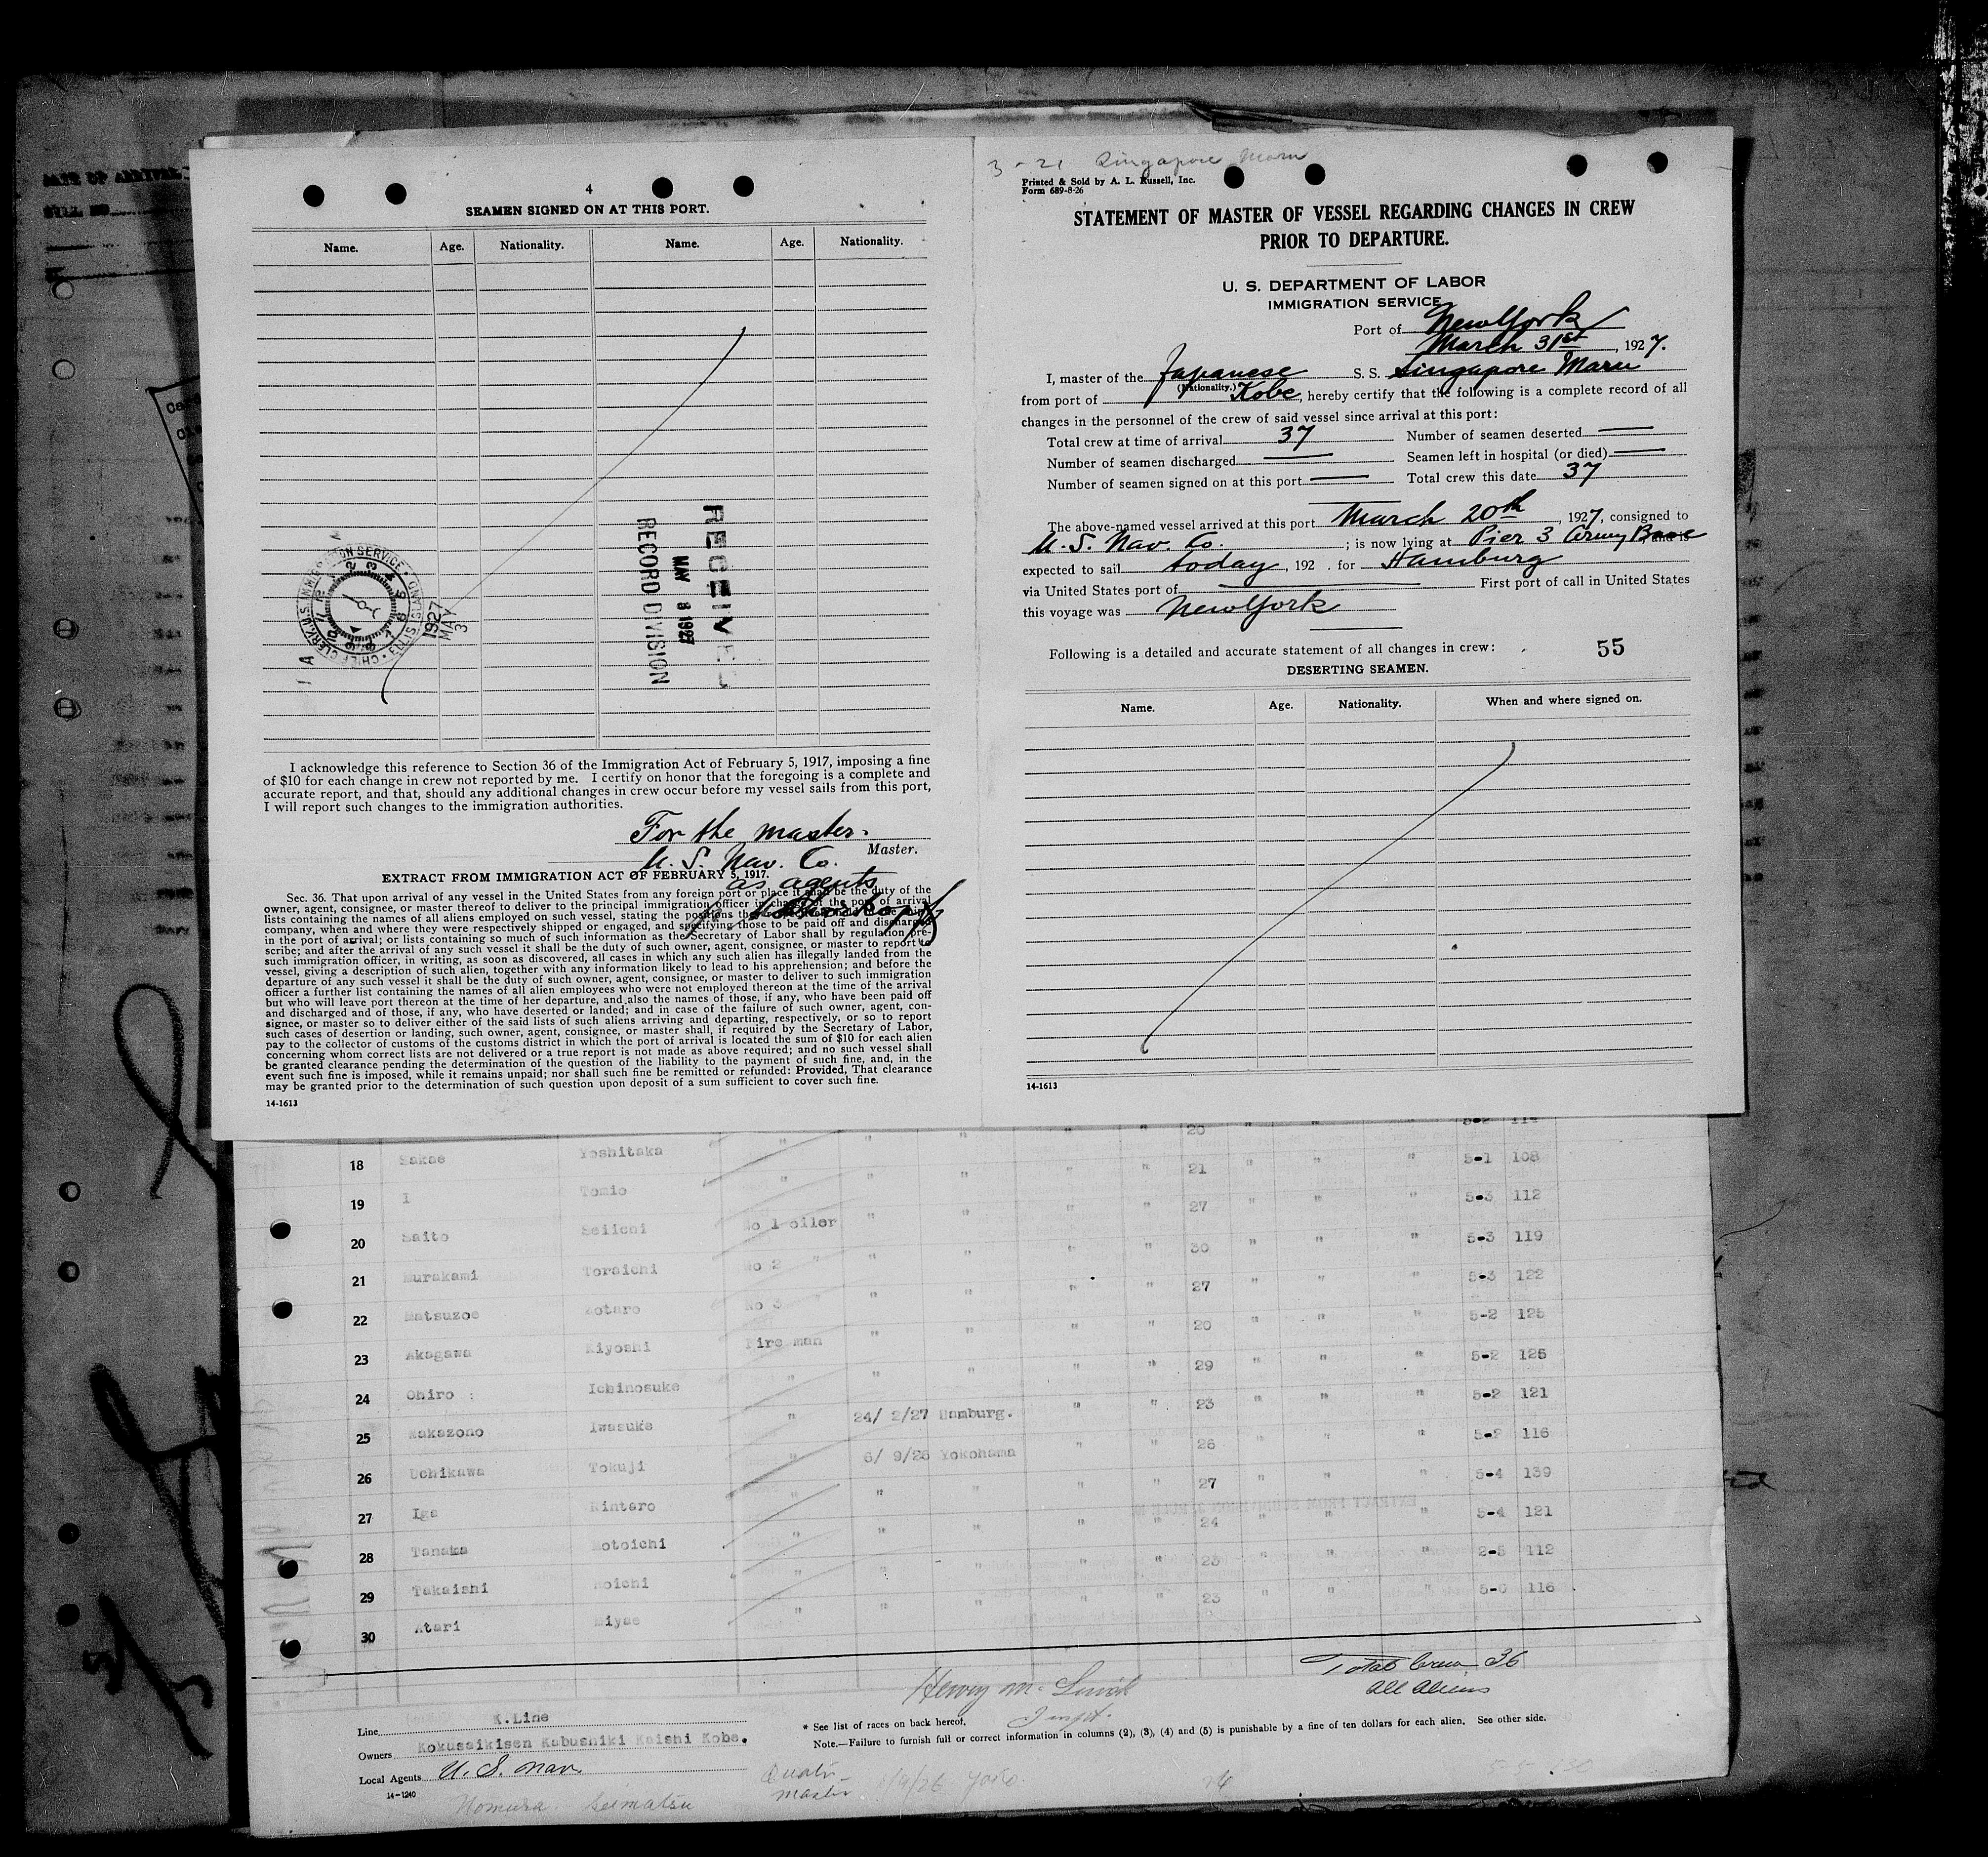 4
SEAMEN SIGNED ON AT THIS PORT.
Name. Age. Nationality. Name. Age. Nationality.
CHIEF CLERK, U.S. IMMIGRATION SERVICE · ELLIS ISLAND
1927
MAY
3
RECEIVE
MAY 3 1927
RECORD DIVISION
I acknowledge this reference to Section 36 of the Immigration Act of February 5, 1917, imposing a fine
of $10 for each change in crew not reported by me. I certify on honor that the foregoing is a complete and
accurate report, and that, should any additional changes in crew occur before my vessel sails from this port,
I will report such changes to the immigration authorities.
For the master.
U. S. Nav. Co. Master.
as agents
EXTRACT FROM IMMIGRATION ACT OF FEBRUARY 5, 1917.
Sec. 36. That upon arrival of any vessel in the United States from any foreign port or place it shall be the duty of the
owner, agent, consignee, or master thereof to deliver to the principal immigration officer in charge of the port of arrival
lists containing the names of all aliens employed on such vessel, stating the positions they
company, when and where they were respectively shipped or engaged, and specifying those to be paid off and discharged
in the port of arrival; or lists containing so much of such information as the Secretary of Labor shall by regulation pre-
scribe; and after the arrival of any such vessel it shall be the duty of such owner, agent, consignee, or master to report to
such immigration officer, in writing, as soon as discovered, all cases in which any such alien has illegally landed from the
vessel, giving a description of such alien, together with any information likely to lead to his apprehension; and before the
departure of any such vessel it shall be the duty of such owner, agent, consignee, or master to deliver to such immigration
officer a further list containing the names of all alien employees who were not employed thereon at the time of the arrival
but who will leave port thereon at the time of her departure, and also the names of those, if any, who have been paid off
and discharged and of those, if any, who have deserted or landed; and in case of the failure of such owner, agent, con-
signee, or master so to deliver either of the said lists of such aliens arriving and departing, respectively, or so to report
such cases of desertion or landing, such owner, agent, consignee, or master shall, if required by the Secretary of Labor,
pay to the collector of customs of the customs district in which the port of arrival is located the sum of $10 for each alien
concerning whom correct lists are not delivered or a true report is not made as above required; and no such vessel shall
be granted clearance pending the determination of the question of the liability to the payment of such fine, and, in the
event such fine is imposed, while it remains unpaid; nor shall such fine be remitted or refunded: Provided, That clearance
may be granted prior to the determination of such question upon deposit of a sum sufficient to cover such fine.
14-1613
3-21 Singapore Maru
Printed & Sold by A. L. Russell, Inc.
Form 689-8-26
STATEMENT OF MASTER OF VESSEL REGARDING CHANGES IN CREW
PRIOR TO DEPARTURE.
U. S. DEPARTMENT OF LABOR
IMMIGRATION SERVICE
Port of New York
March 31st, 1927.
I, master of the Japanese S. S. Singapore Maru
(Nationality.)
from port of Kobe, hereby certify that the following is a complete record of all
changes in the personnel of the crew of said vessel since arrival at this port:
Total crew at time of arrival 37 Number of seamen deserted —
Number of seamen discharged — Seamen left in hospital (or died) —
Number of seamen signed on at this port — Total crew this date 37
The above-named vessel arrived at this port March 20th, 1927, consigned to
U. S. Nav. Co. ; is now lying at Pier 3 Army Base, and is
expected to sail today, 192 . for Hamburg
via United States port of — First port of call in United States
this voyage was New York
Following is a detailed and accurate statement of all changes in crew: 55
DESERTING SEAMEN.
Name. Age. Nationality. When and where signed on.
14-1613
" " " " " 20 " " " 5-2 114
18 Sakae Yoshitaka " " " " " 21 " " " 5-1 108
19 I Tomio " " " " " 27 " " " 5-3 112
20 Saito Seiichi No 1 oiler " " " " 30 " " " 5-3 119
21 Murakami Toraichi No 2 " " " " " 27 " " " 5-3 122
22 Matsuzoe Kotaro No 3 " " " " " 20 " " " 5-2 125
23 Akagawa Kiyoshi Fire man " " " " 29 " " " 5-2 125
24 Ohiro Ichinosuke " " " " " 23 " " " 5-2 121
25 Nakazono Iwasuke " 24/ 2/27 Hamburg. " " 26 " " " 5-2 116
26 Uchikawa Tokuji " 6/ 9/26 Yokohama " " 27 " " " 5-4 139
27 Iga Rintaro " " " " " 24 " " " 5-4 121
28 Tanaka Motoichi " " " " " 23 " " " 2-5 112
29 Takaishi Koichi " " " " " 23 " " " 5-0 116
30 Atari Miyae " " "
Total Crew 36
All Aliens
Line K.Line
Owners Kokusaikisen Kabushiki Kaishi Kobe.
Local Agents U. S. Nav.
14-1240
* See list of races on back hereof.
Note.—Failure to furnish full or correct information in columns (2), (3), (4) and (5) is punishable by a fine of ten dollars for each alien. See other side.
Nomura Seimatsu Quatr master 26